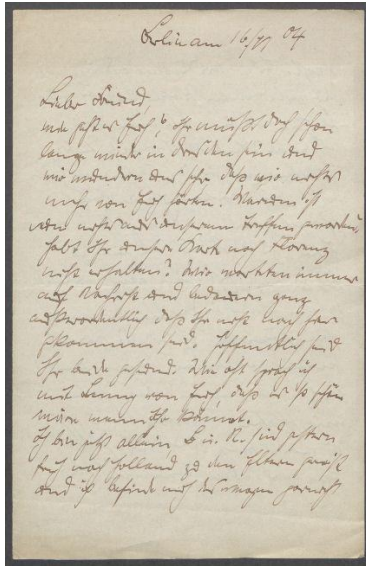 Berlin am 16/VI 04
Lieber Freund,
wie geht es Euch? Ihr müßt doch schon
lange wieder in Dresden sein und
wir wundern uns sehr daß wir nichts
mehr von Euch hörten. Warum ist
denn nichts aus unserem Treffen geworden,
habt Ihr unsere Karte nach Florenz
nicht erhalten? Wir warteten immer
auf Nachricht und bedauern ganz
außerordentlich daß Ihr nicht nach hier
gekommen seid. Hoffentlich seid
Ihr beide gesund. Wie oft sprach ich
mit von Euch, daß es so schön
wäre wenn Ihr kämet.
Ich bin jetzt allein B u. K. sind gestern
früh nach Holland zu den Eltern gereist
und ich befinde mich deswegen